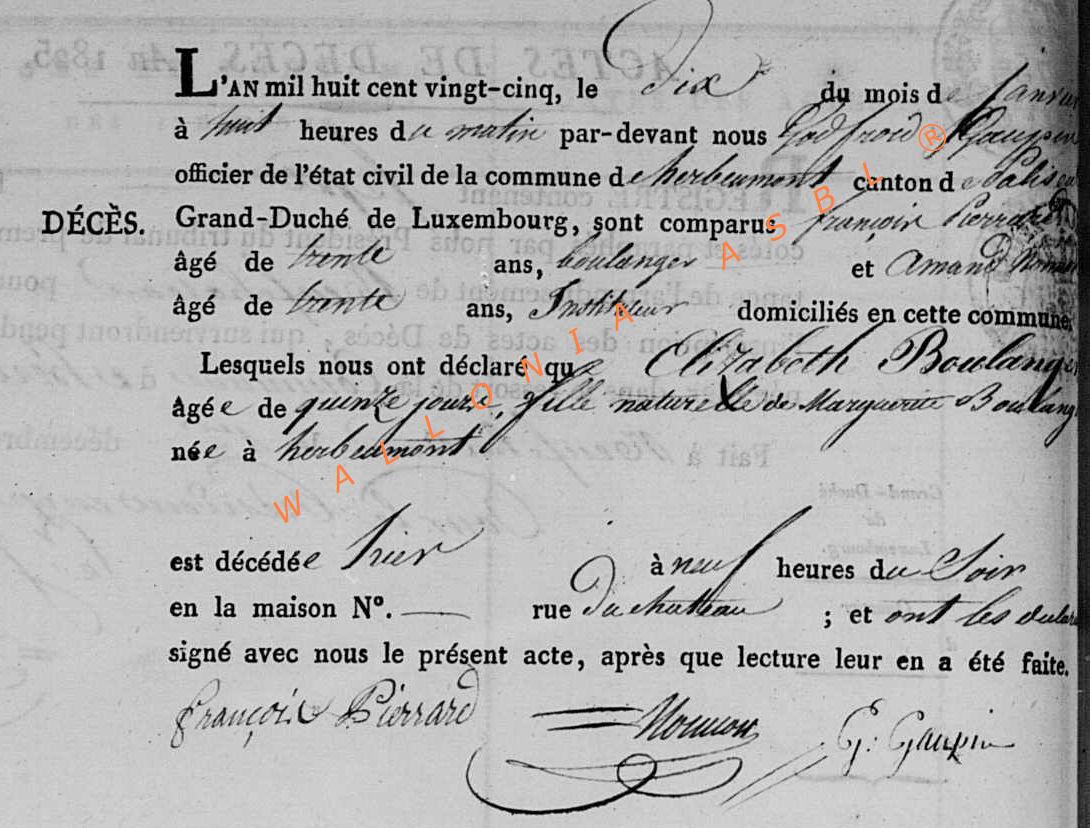 L'AN mil huit cent vingt-cinq, le Dix du mois de Janvier
à huit heures du matin par-devant nous Godfroid Gaupin
officier de l'état civil de la commune de herbeumont canton de Paliseu
DÉCÈS. Grand-Duché de Luxembourg, sont comparus françois Pierrard
âgé de trente ans, boulanger et Amand
âgé de trente ans, Instituteur domiciliés en cette commune.
Lesquels nous ont déclaré que Elizabeth Boulanger
âgée de quinze jours, fille naturelle de Marguerite Boulang
née à herbeumont
est décédée hier à neuf heures du Soir
en la maison N°. — rue du chatteau ; et ont les
signé avec nous le présent acte, après que lecture leur en a été faite.
françois Pierrard G. Gaupin
WALLONIA ASBL ®